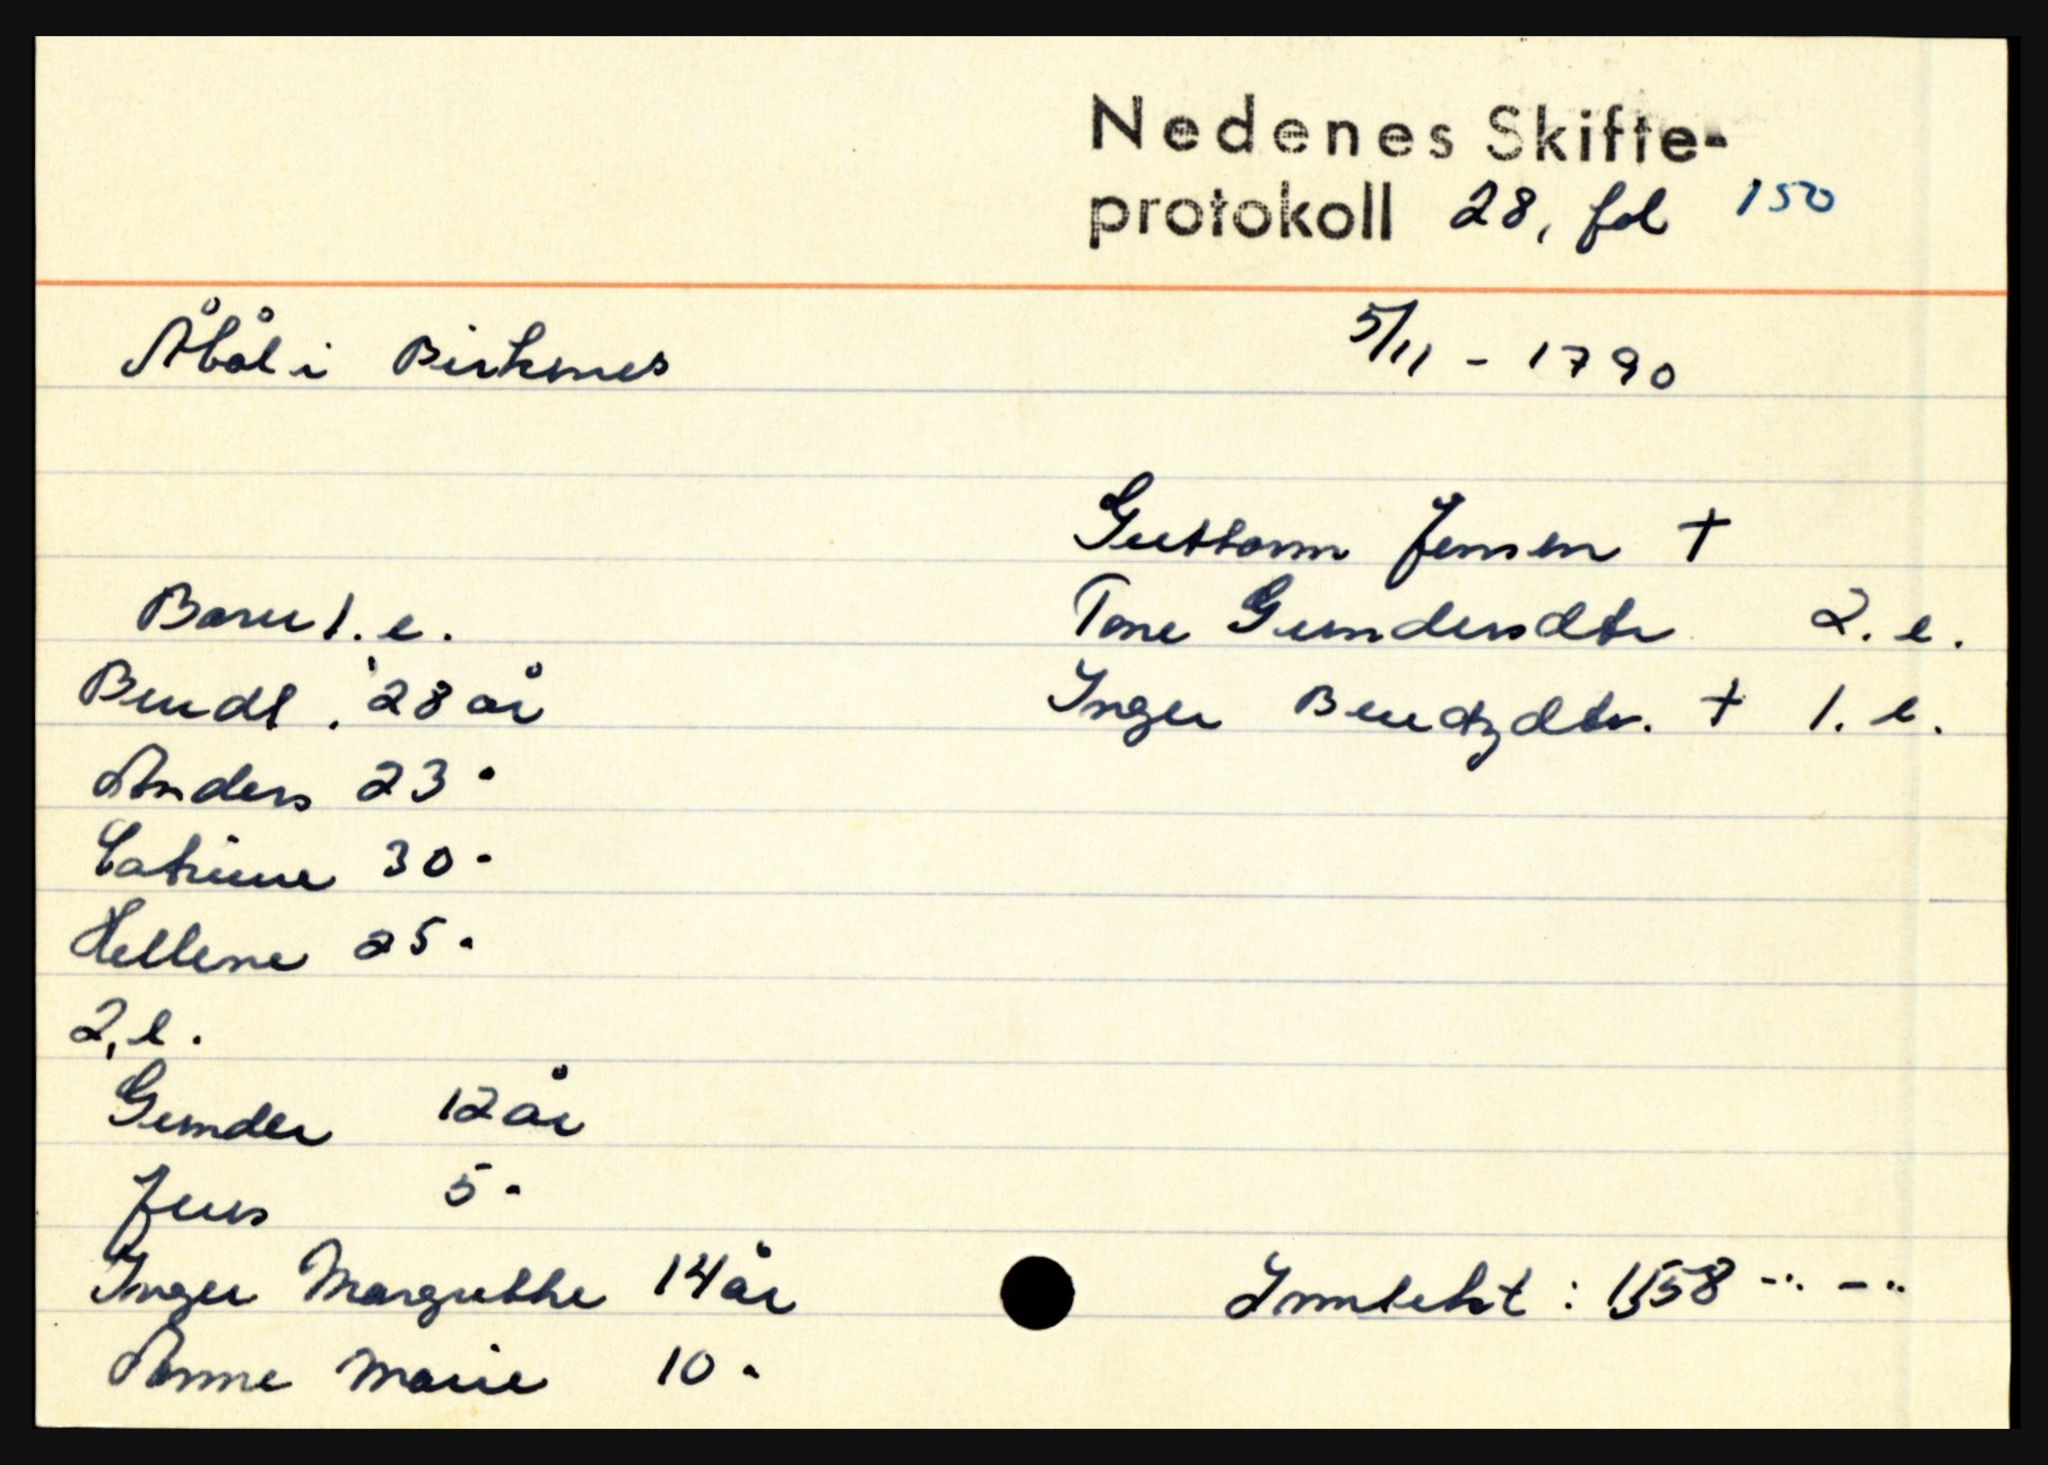 Nedenes Skifte-
protokoll 28, fol 150
Åbål i Birkenes 5/11 - 1790
Guttorm Jensen †
Barn 1. e. Tone Gundersdtr 2. e.
Bendt . 28 år Inger Bentzdtr. † 1. e.
Anders 23 "
Catrine 30 "
Hellene 25 "
2. e.
Gunder 12 år
Jens 5 "
Inger Margrethe 14 år Inntekt : 158 -".-"
Anne Marie 10 "